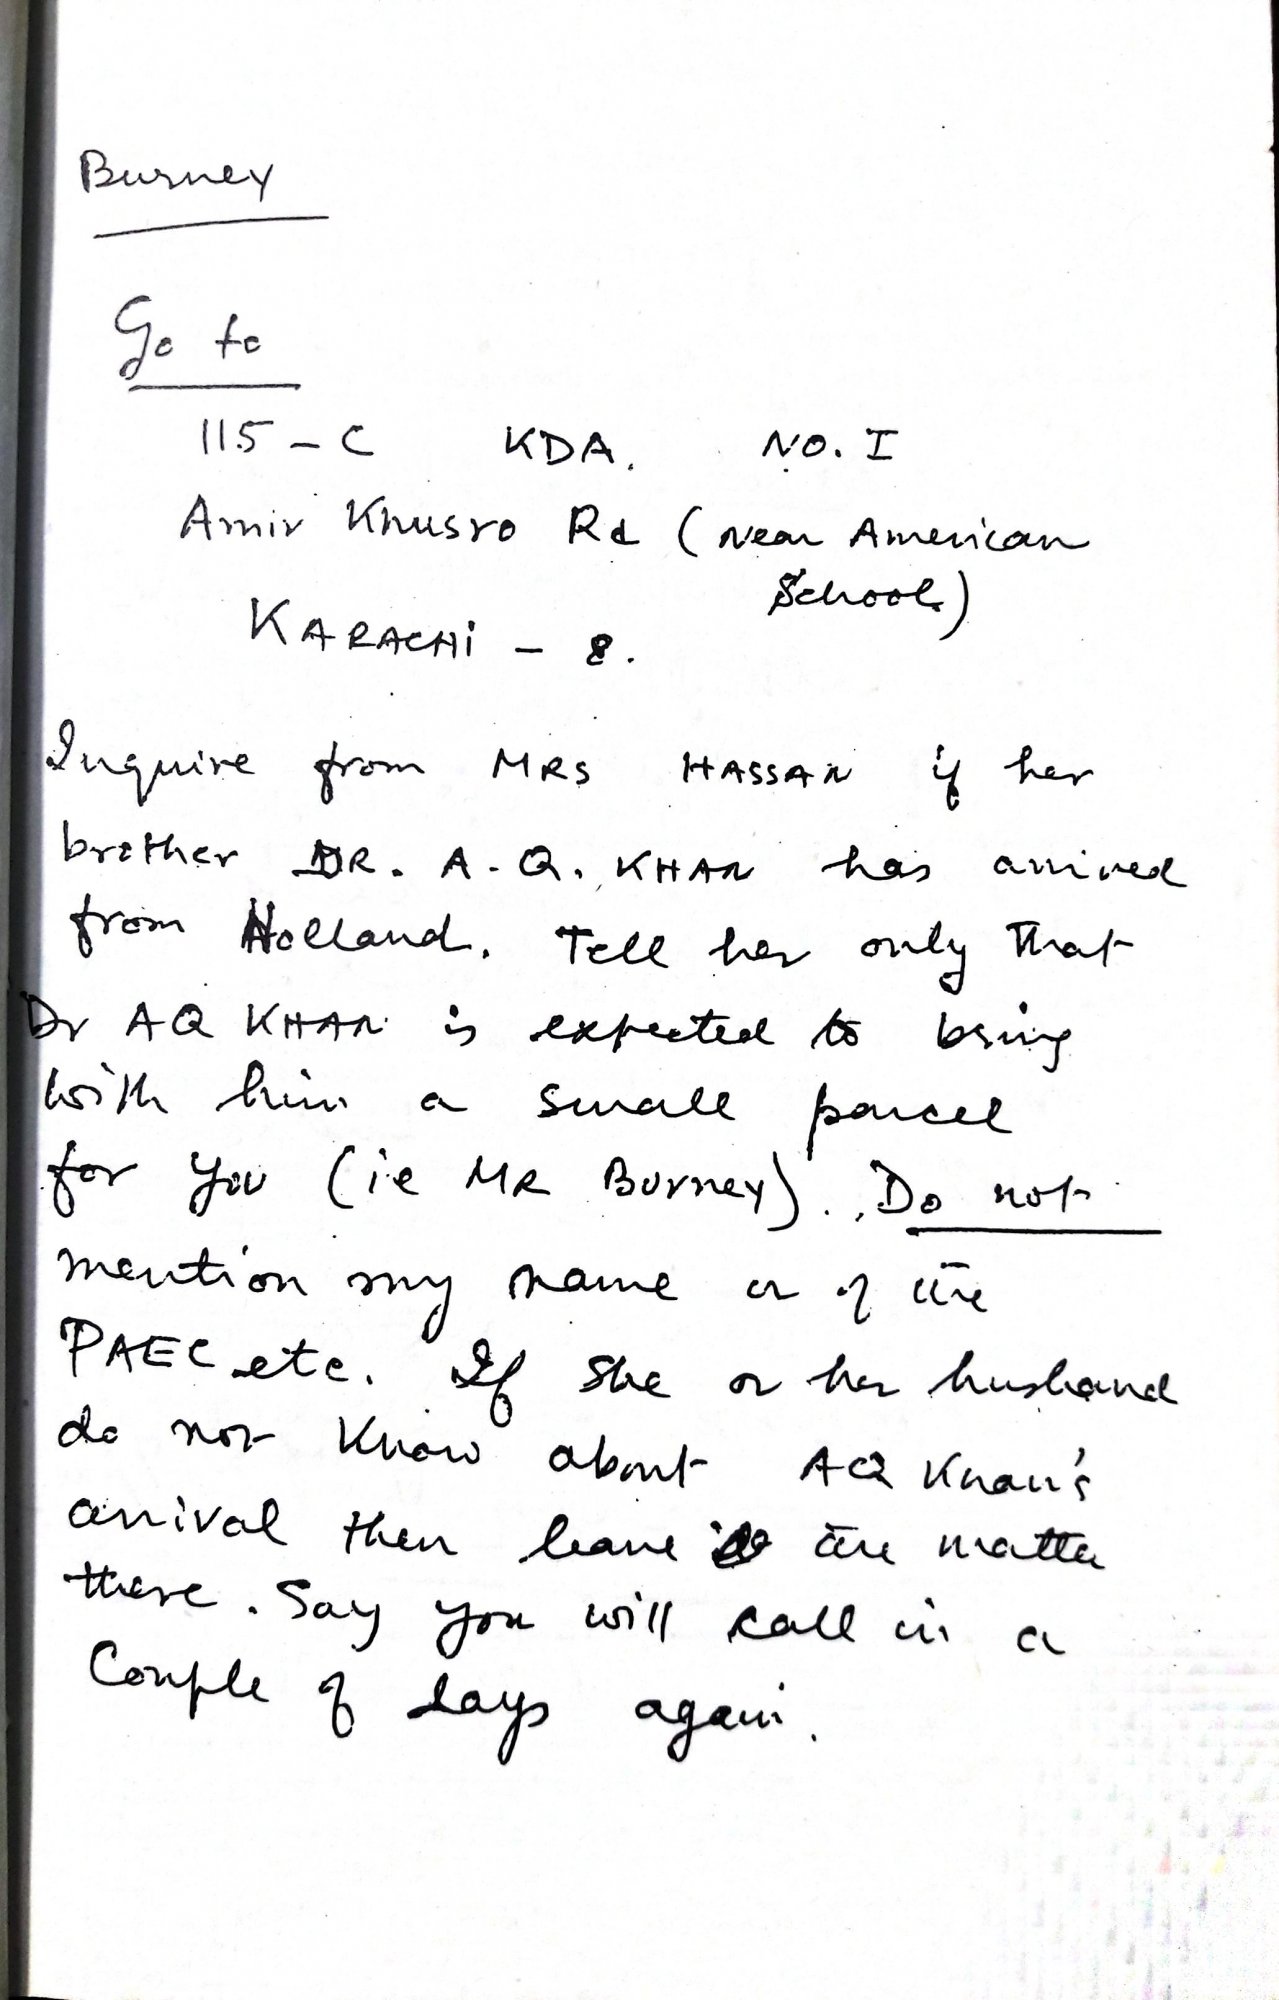 Burney
Go to
115-C KDA. NO. I
Amir Khusro Rd (near American
School)
KARACHI - 8.
Inquire from MRS HASSAN if her
brother DR. A.Q. KHAN has arrived
from Holland. Tell her only that
Dr AQ KHAN is expected to bring
with him a small parcel
for you (ie MR Burney). Do not
mention my name or of the
PAEC etc. If she or her husband
do not know about AQ Khan's
arrival then leave the matter
there. Say you will call in a
Couple of days again.